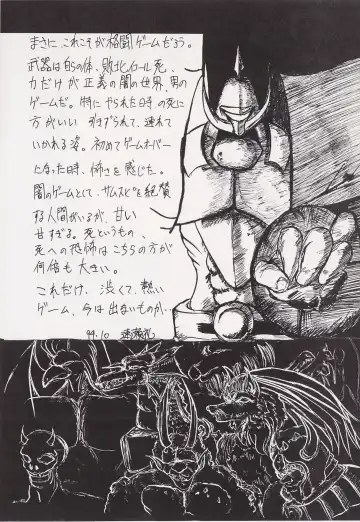 まさに、これこそが格闘ゲームだろう。
武器は自らの体、敗北イコール死、
力だけが正義の闇の世界、男の
ゲームだ。特にやられた時の死に
方がいい 引きずられて、連れて
いかれる姿。初めてゲームオーバー
になった時、怖さを感じた。
闇のゲームとして、サムスピを絶賛
する人間がいるが、甘い
甘すぎる。死というもの、
死への恐怖はこちらの方が
何倍も大きい。
これだけ、渋くて、熱い
ゲーム、今は出ないものか。
94.10